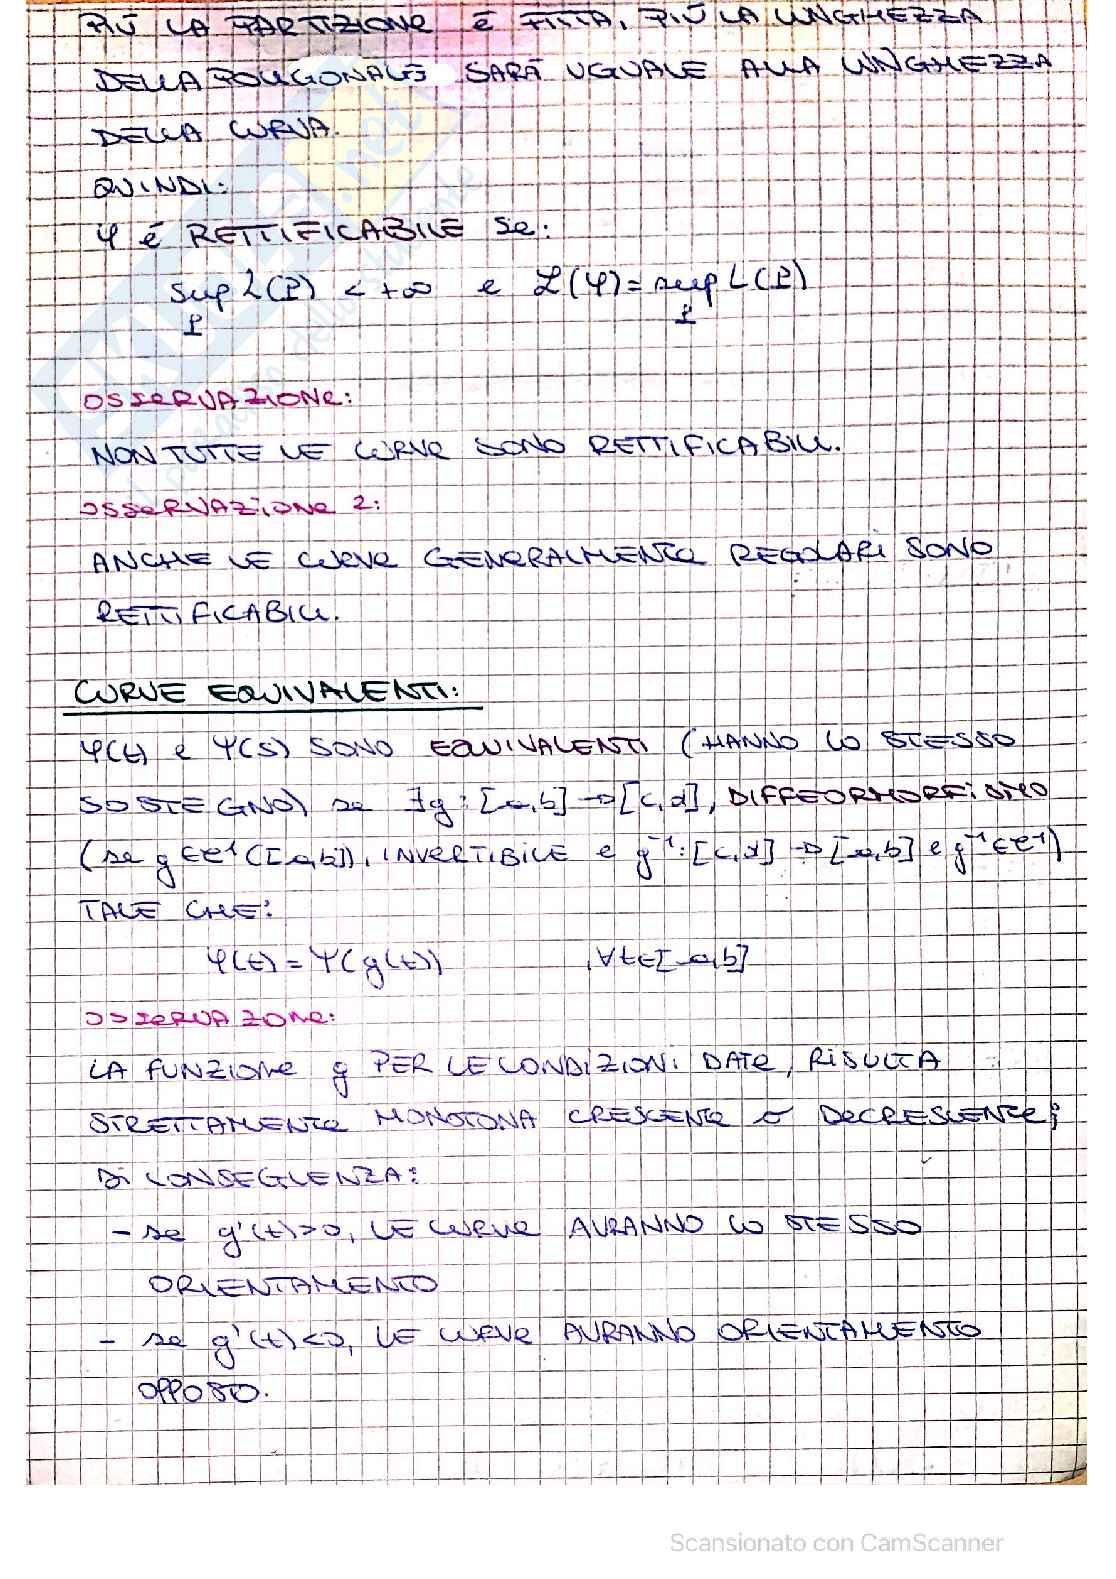 PIÙ LA PARTIZIONE È FITTA, PIÙ LA LUNGHEZZA
DELLA POLIGONALE SARÀ UGUALE ALLA LUNGHEZZA
DELLA CURVA.
QUINDI:
φ È RETTIFICABILE SE:
sup L(P) < +∞ e L(φ) = sup L(P)
P P
OSSERVAZIONE:
NON TUTTE LE CURVE SONO RETTIFICABILI.
OSSERVAZIONE 2:
ANCHE LE CURVE GENERALMENTE REGOLARI SONO
RETTIFICABILI.
CURVE EQUIVALENTI:
φ(t) e ψ(s) SONO EQUIVALENTI (HANNO LO STESSO
SOSTEGNO) se ∃g: [a,b] → [c,d], DIFFEORMORFISMO
(se g ∈ C¹([a,b]), INVERTIBILE e g⁻¹: [c,d] → [a,b] e g⁻¹ ∈ C¹)
TALE CHE:
φ(t) = ψ(g(t)) , ∀t∈[a,b]
OSSERVAZONE:
LA FUNZIONE g PER LE CONDIZIONI DATE, RISULTA
STRETTAMENTE MONOTONA CRESCENTE O DECRESCENTE;
DI CONSEGUENZA:
- se g'(t)>0, LE CURVE AVRANNO LO STESSO
ORIENTAMENTO
- se g'(t)<0, LE CURVE AVRANNO ORIENTAMENTO
OPPOSTO.
Scansionato con CamScanner